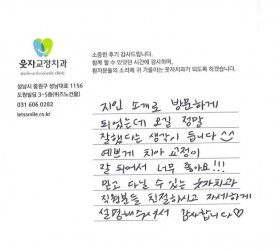 웃자교정치과
성남시 중원구 성남대로 1156
도원빌딩 3~5층(위즈노건물)
031 606 0282
letssmile.co.kr
소중한 후기 감사드립니다.
함께 할 수 있었던 시간에 감사하며,
환자분들의 소리에 귀 기울이는 웃자치과가 되도록 하겠습니다.
지인 소개로 방문하게
되었는데 오길 정말
잘했다는 생각이 듭니다 ^^
예쁘게 치아 교정이
잘 되어서 너무 좋아요!!!
믿고 다닐 수 있는 웃자치과
직원분들 친절하시고 자세하게
설명해주셔서 감사합니다♡